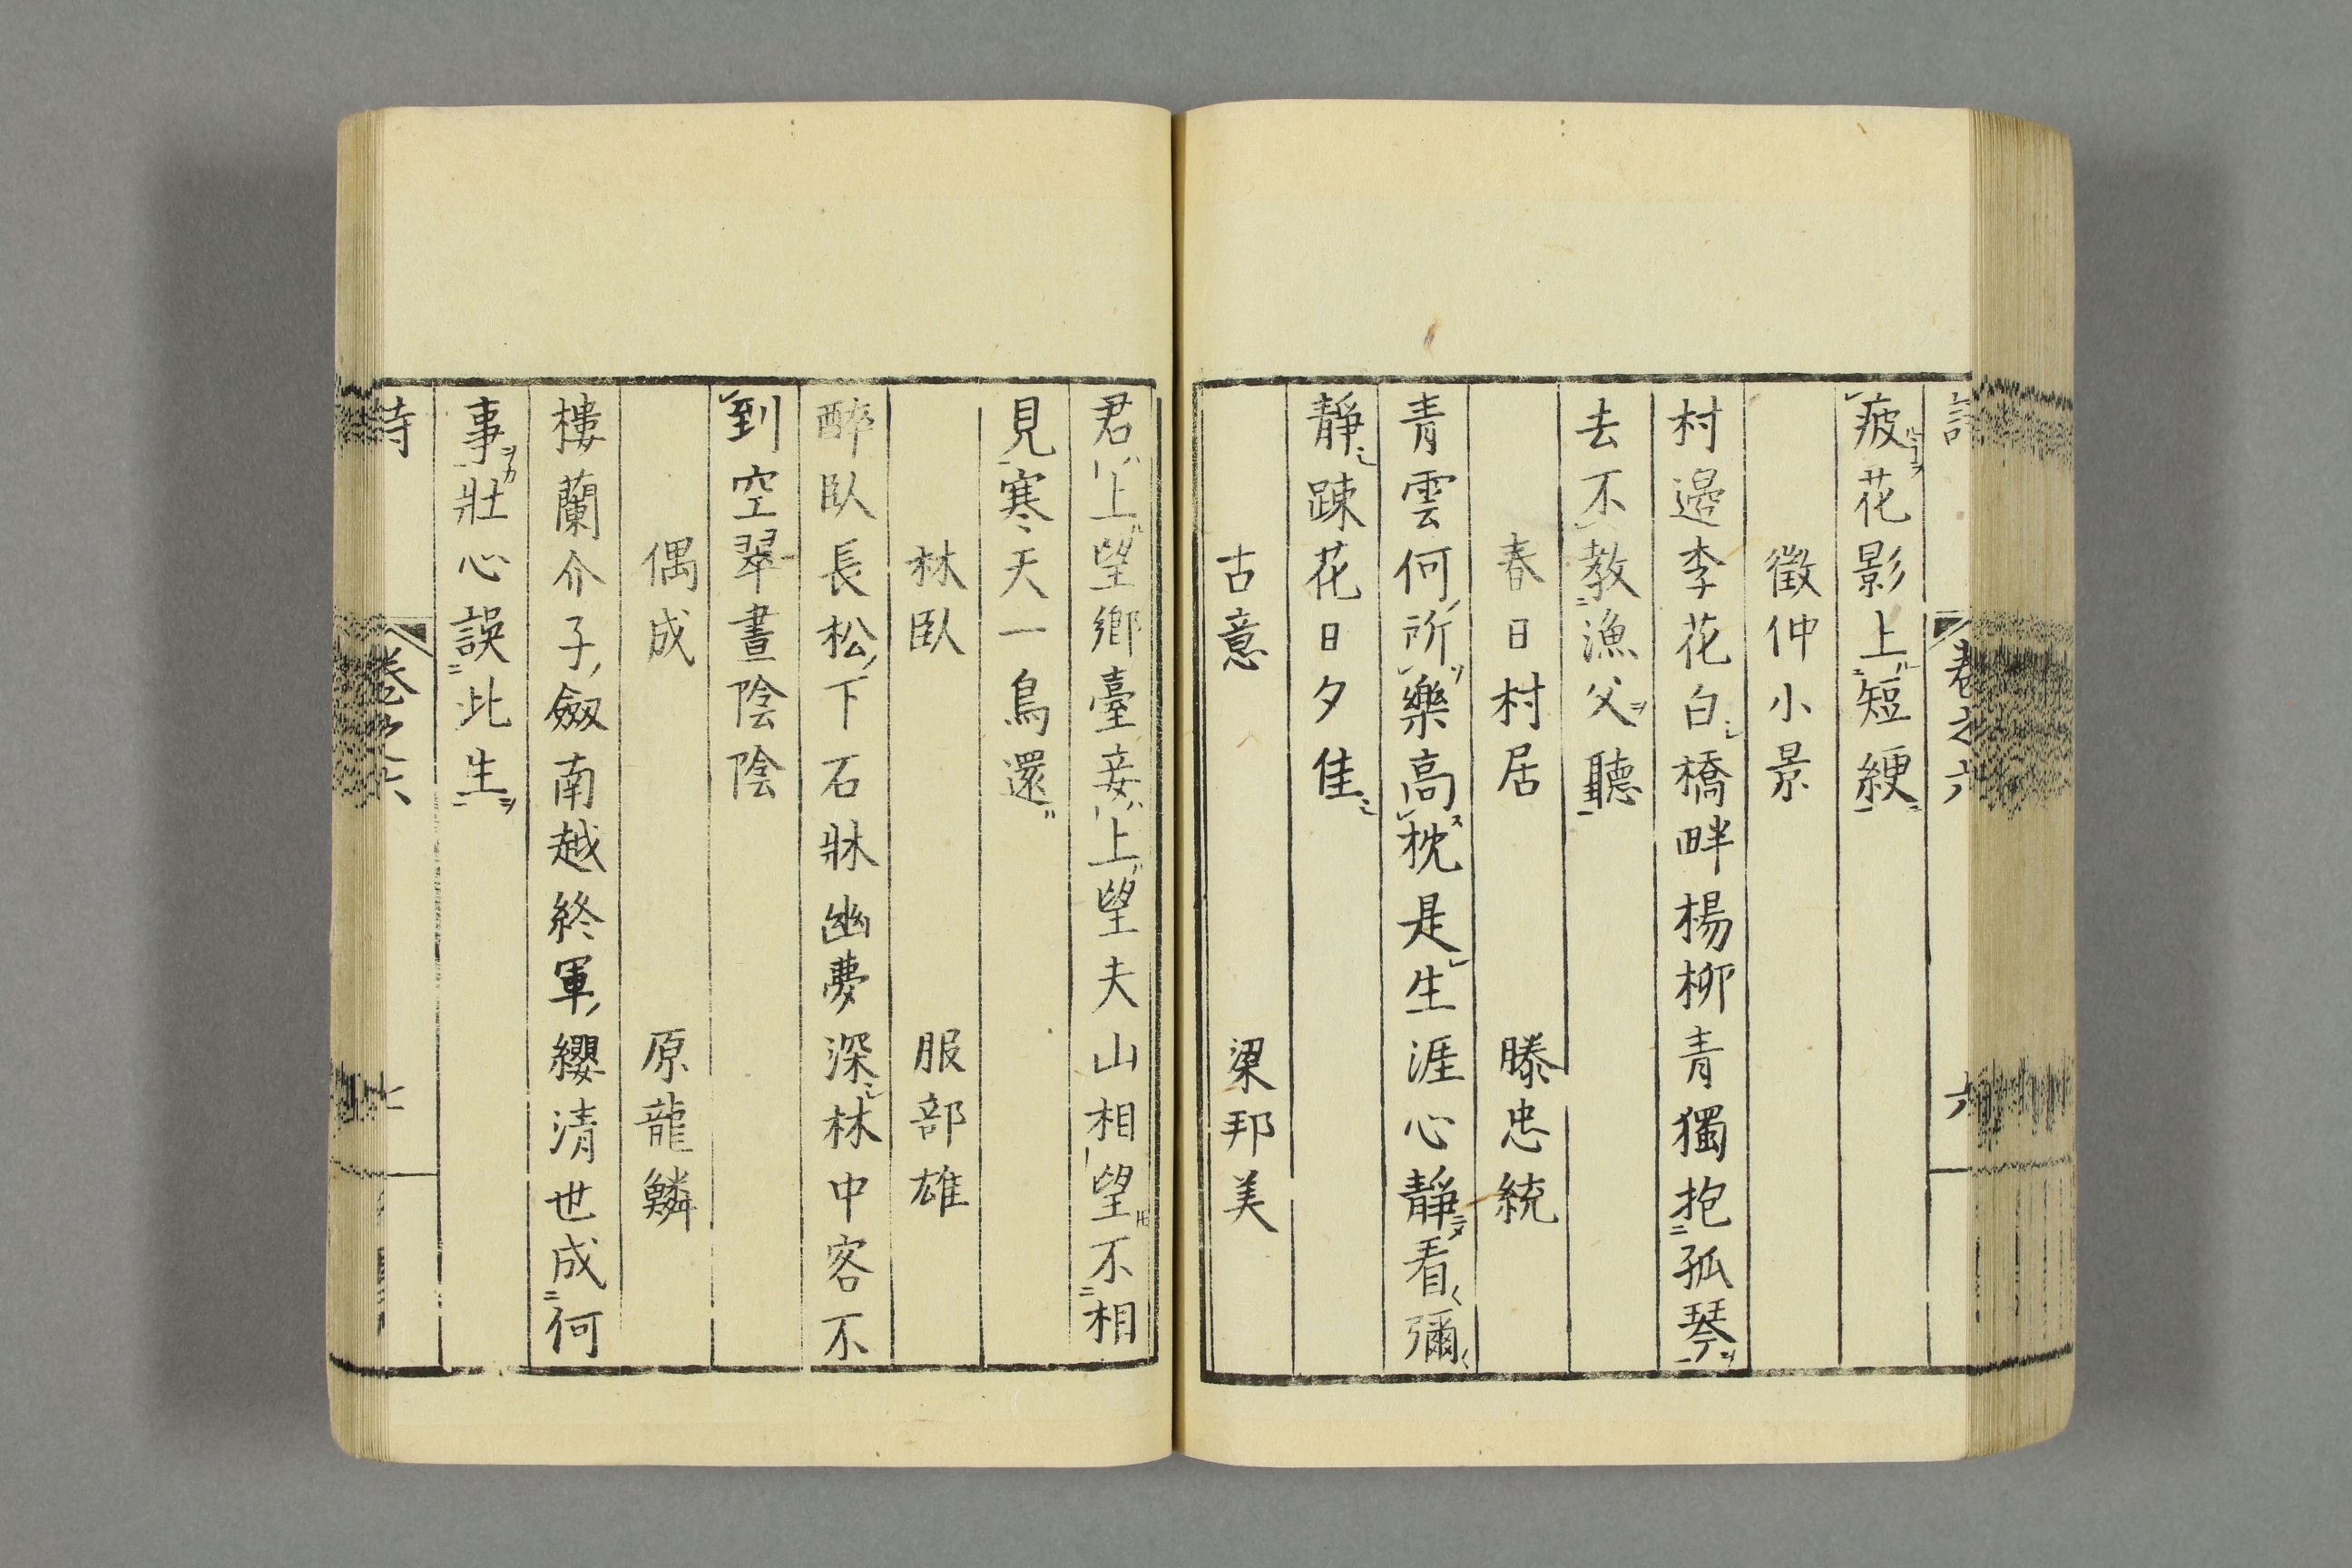 卷之六
六
疲花影上短綆
徵仲小景
村邊李花白橋畔楊柳青獨抱孤琴
去不教漁父聽
春日村居 滕忠統
青雲何所樂高枕是生涯心靜看彌
靜踈花日夕佳
古意 梁邦美
君上望鄉臺妾上望夫山相望不相
見寒天一鳥還
林臥 服部雄
醉臥長松下石牀幽夢深林中客不
到空翠晝陰陰
偶成 原龍鱗
樓蘭介子劔南越終軍纓清世成何
事壯心誤此生
詩
卷之六
七